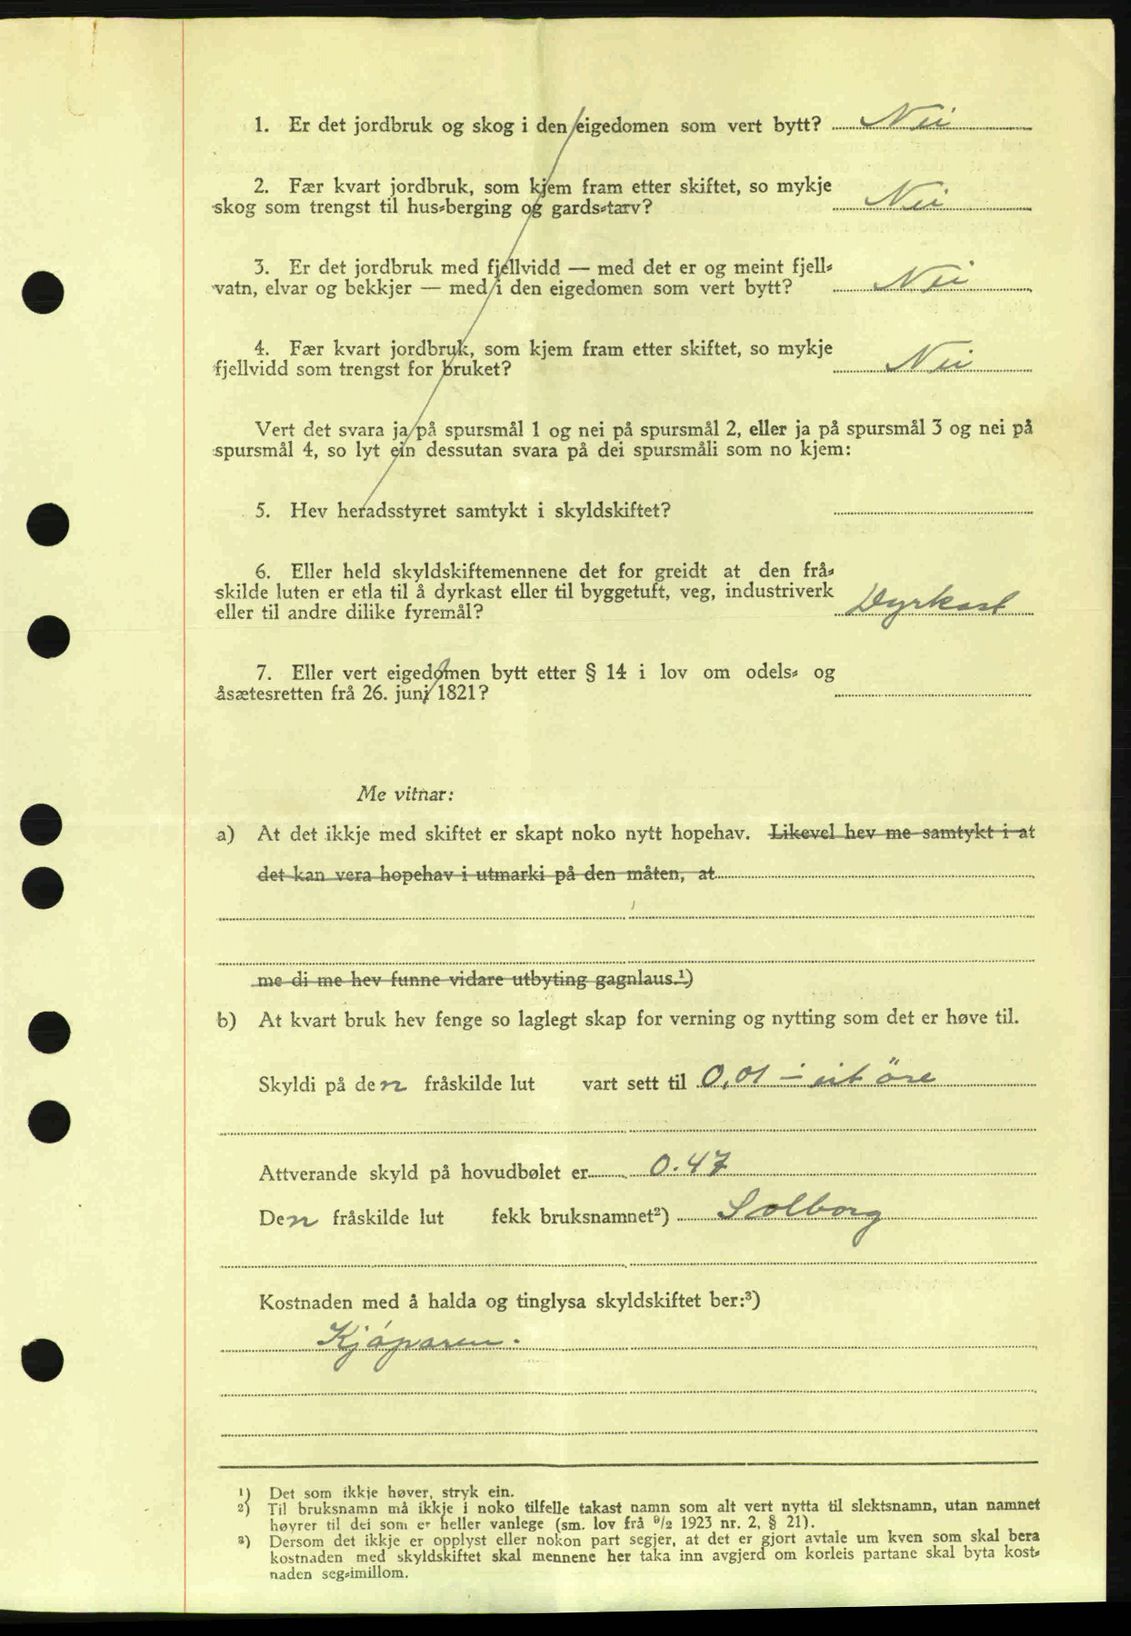 1. Er det jordbruk og skog i den eigedomen som vert bytt? Nei
2. Fær kvart jordbruk, som kjem fram etter skiftet, so mykje
skog som trengst til hus-berging og gards-tarv? Nei
3. Er det jordbruk med fjellvidd — med det er og meint fjell-
vatn, elvar og bekkjer — med i den eigedomen som vert bytt? Nei
4. Fær kvart jordbruk, som kjem fram etter skiftet, so mykje
fjellvidd som trengst for bruket? Nei
Vert det svara ja på spursmål 1 og nei på spursmål 2, eller ja på spursmål 3 og nei på
spursmål 4, so lyt ein dessutan svara på dei spursmåli som no kjem:
5. Hev heradsstyret samtykt i skyldskiftet?
6. Eller held skyldskiftemennene det for greidt at den frå-
skilde luten er etla til å dyrkast eller til byggetuft, veg, industriverk
eller til andre dilike fyremål? Dyrkast
7. Eller vert eigedomen bytt etter § 14 i lov om odels- og
åsætesretten frå 26. juni 1821?
Me vitnar:
a) At det ikkje med skiftet er skapt noko nytt hopehav. Likevel hev me samtykt i at
det kan vera hopehav i utmarki på den måten, at
me di me hev funne vidare utbyting gagnlaus.¹)
b) At kvart bruk hev fenge so laglegt skap for verning og nytting som det er høve til.
Skyldi på den fråskilde lut vart sett til 0,01 – eit öre
Attverande skyld på hovudbølet er 0.47
Den fråskilde lut fekk bruksnamnet²) Solborg
Kostnaden med å halda og tinglysa skyldskiftet ber:³)
Kjöparen.
¹) Det som ikkje høver, stryk ein.
²) Til bruksnamn må ikkje i noko tilfelle takast namn som alt vert nytta til slektsnamn, utan namnet
høyrer til dei som er heller vanlege (sm. lov frå ⁹/₂ 1923 nr. 2, § 21).
³) Dersom det ikkje er opplyst eller nokon part segjer, at det er gjort avtale um kven som skal bera
kostnaden med skyldskiftet skal mennene her taka inn avgjerd om korleis partane skal byta kost-
naden seg-imillom.